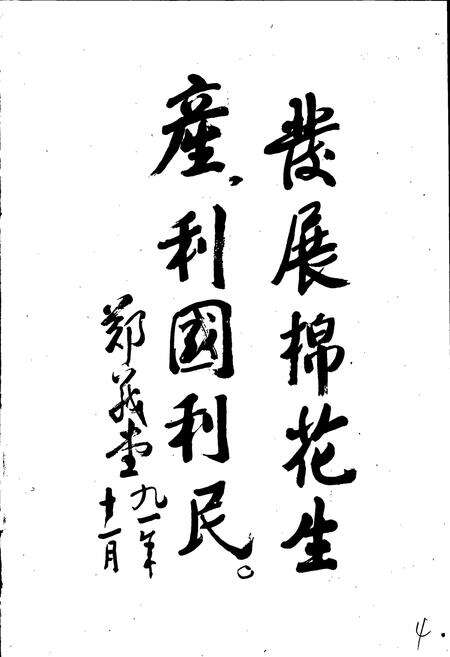 發展棉花生
產，利國利民。
郑義堂
九一年
十一月
4